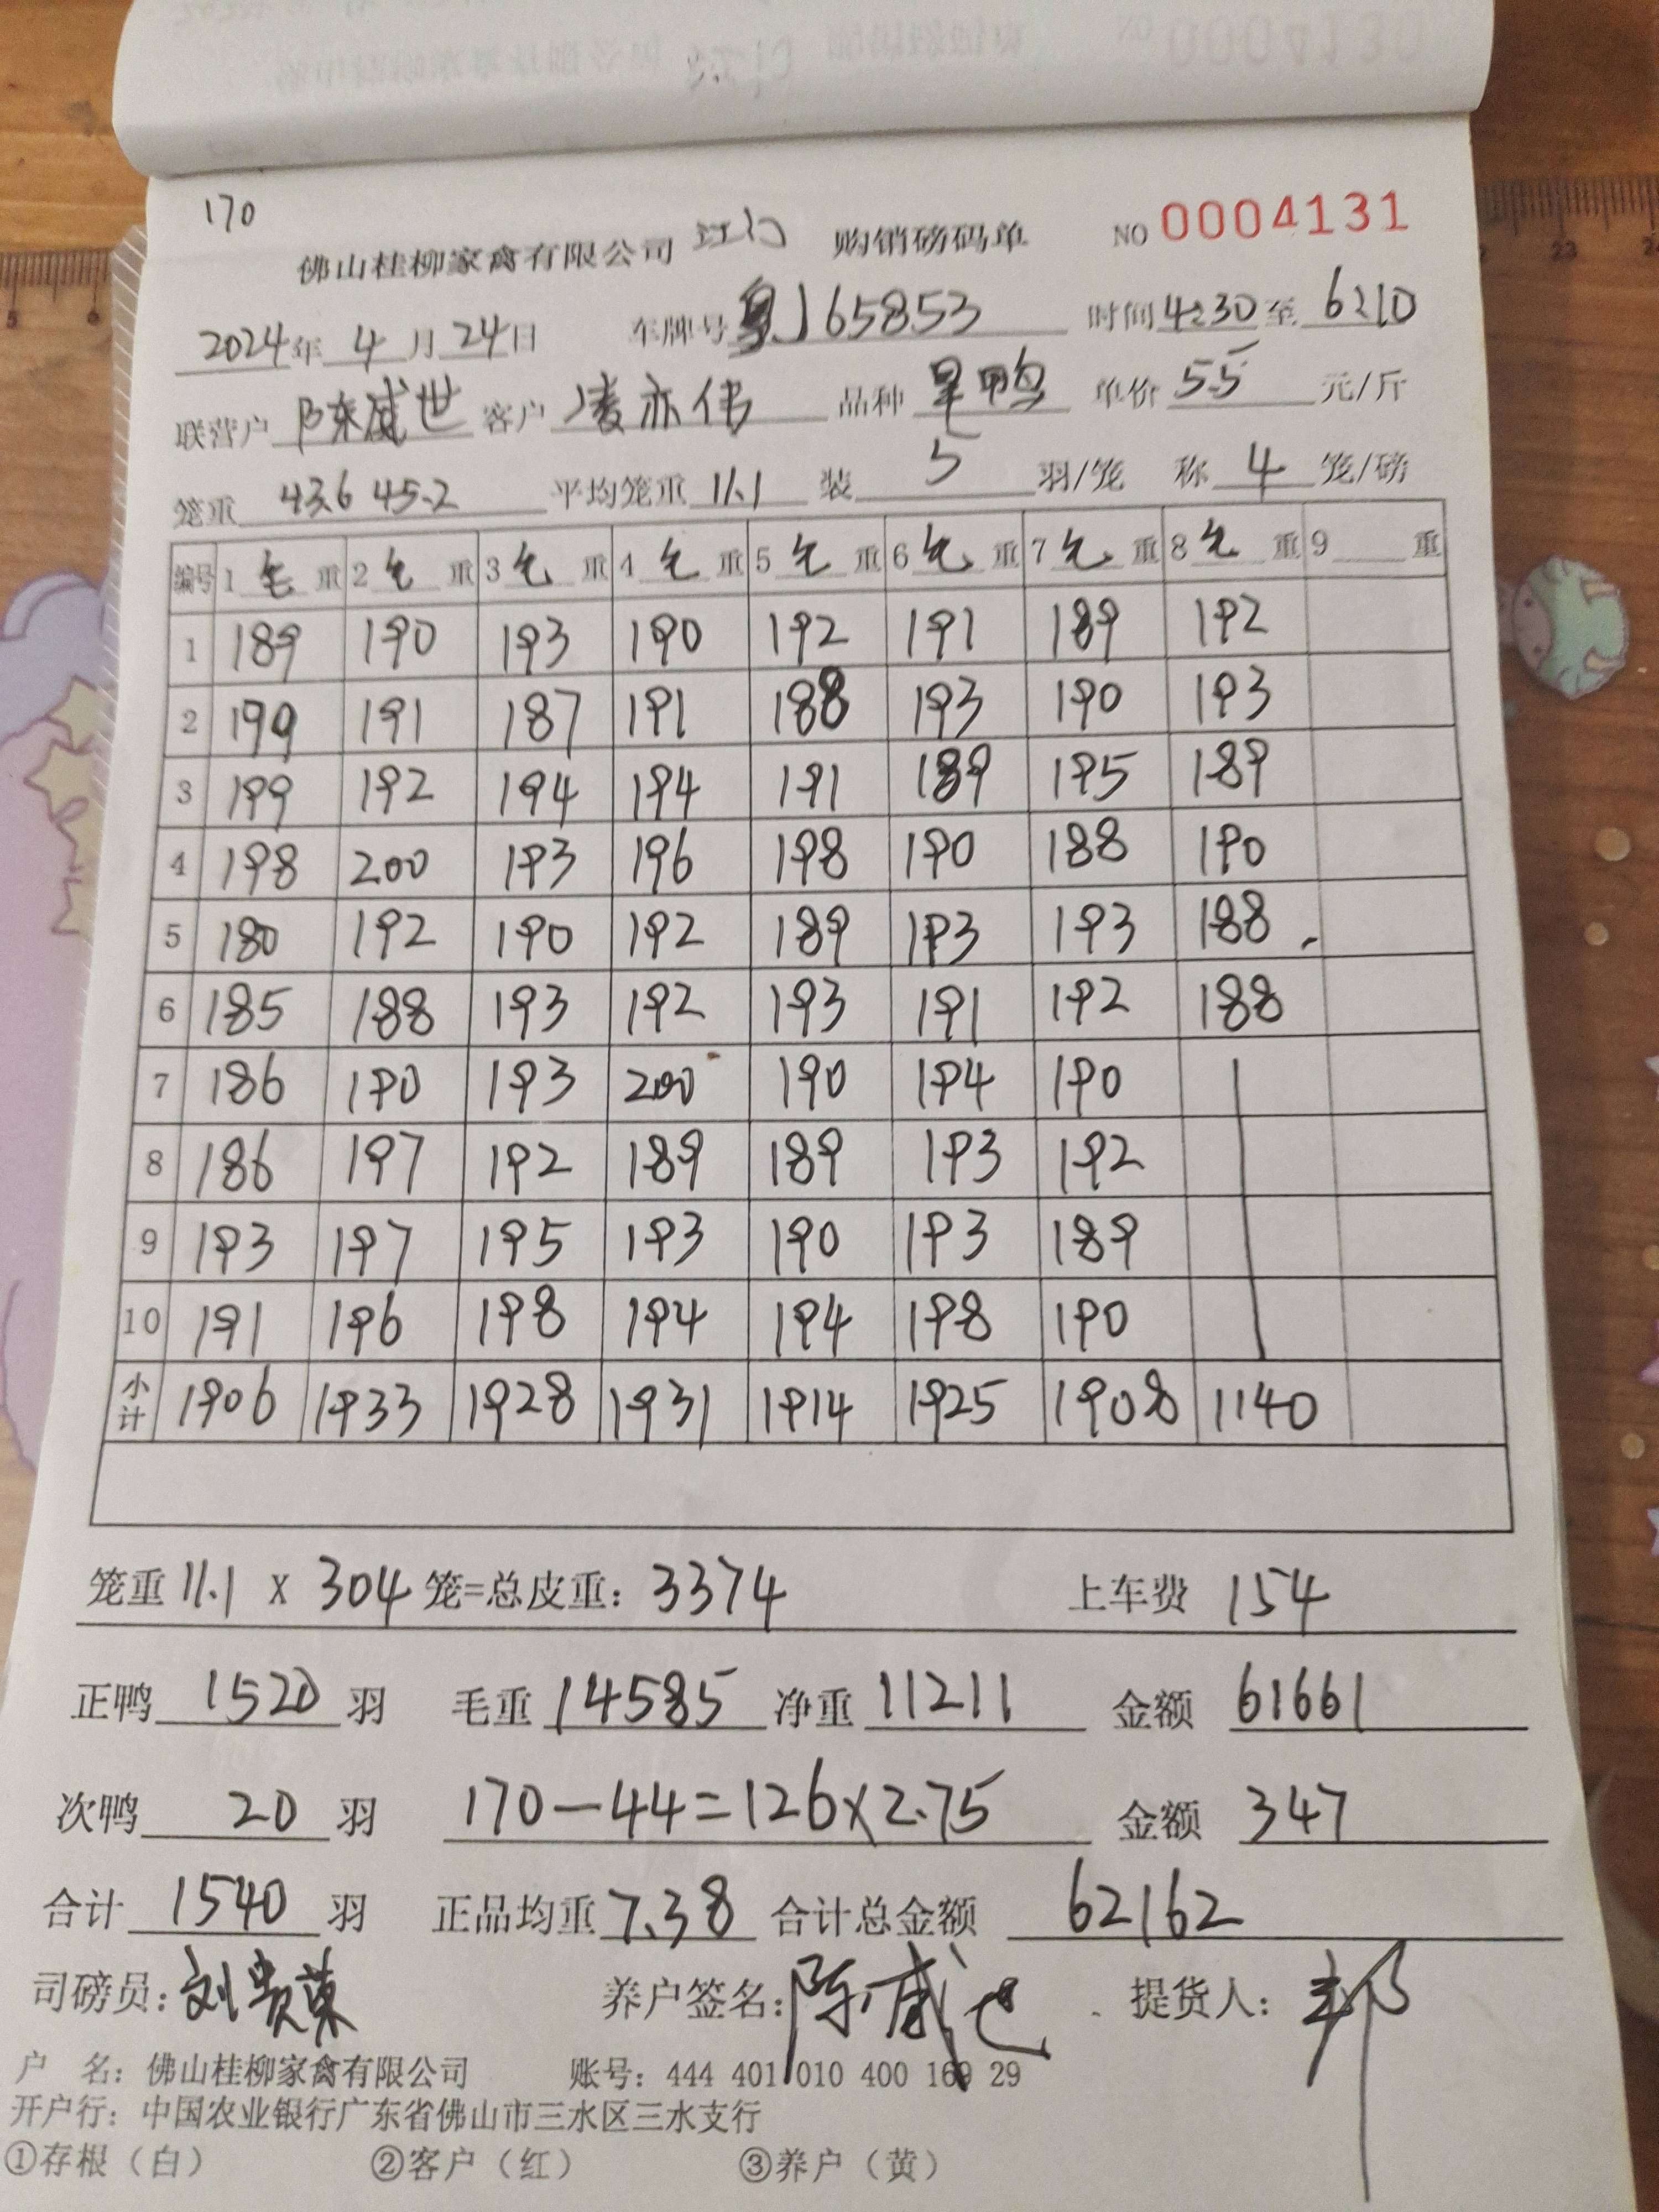 170
佛山桂柳家禽有限公司 江门 购销磅码单 NO 0004131
2024年 4 月 24日 车牌号 粤J65853 时间 4:30 至 6:10
联营户 陈威世 客户 凌亦伟 品种 旱鸭 单价 5.5 元/斤
笼重 43.6 45.2 平均笼重 11.1 装 5 羽/笼 称 4 笼/磅
编号 1 毛 重 2 毛 重 3 毛 重 4 毛 重 5 毛 重 6 毛 重 7 毛 重 8 毛 重 9 重
1 189 190 193 190 192 191 189 192
2 199 191 187 191 188 193 190 193
3 199 192 194 194 191 189 195 189
4 198 200 193 196 198 190 188 190
5 180 192 190 192 189 193 193 188
6 185 188 193 192 193 191 192 188
7 186 190 193 200 190 194 190
8 186 197 192 189 189 193 192
9 193 197 195 193 190 193 189
10 191 196 198 194 194 198 190
小计 1906 1933 1928 1931 1914 1925 1908 1140
笼重 11.1 X 304 笼=总皮重: 3374 上车费 154
正鸭 1520 羽 毛重 14585 净重 11211 金额 61661
次鸭 20 羽 170-44=126×2.75 金额 347
合计 1540 羽 正品均重 7.38 合计总金额 62162
司磅员: 刘贵荣 养户签名: 陈威世 提货人:
户 名: 佛山桂柳家禽有限公司 账号: 444 401 010 400 169 29
开户行: 中国农业银行广东省佛山市三水区三水支行
①存根（白） ②客户（红） ③养户（黄）